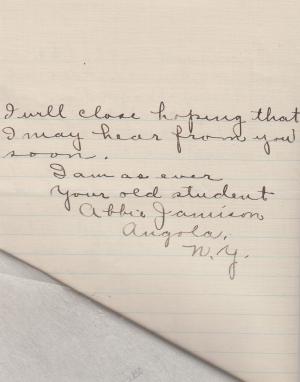 I will close hoping that
I may hear from you
soon.
I am as ever
Your old student
Abbie Jamison
Angola,
N.Y.